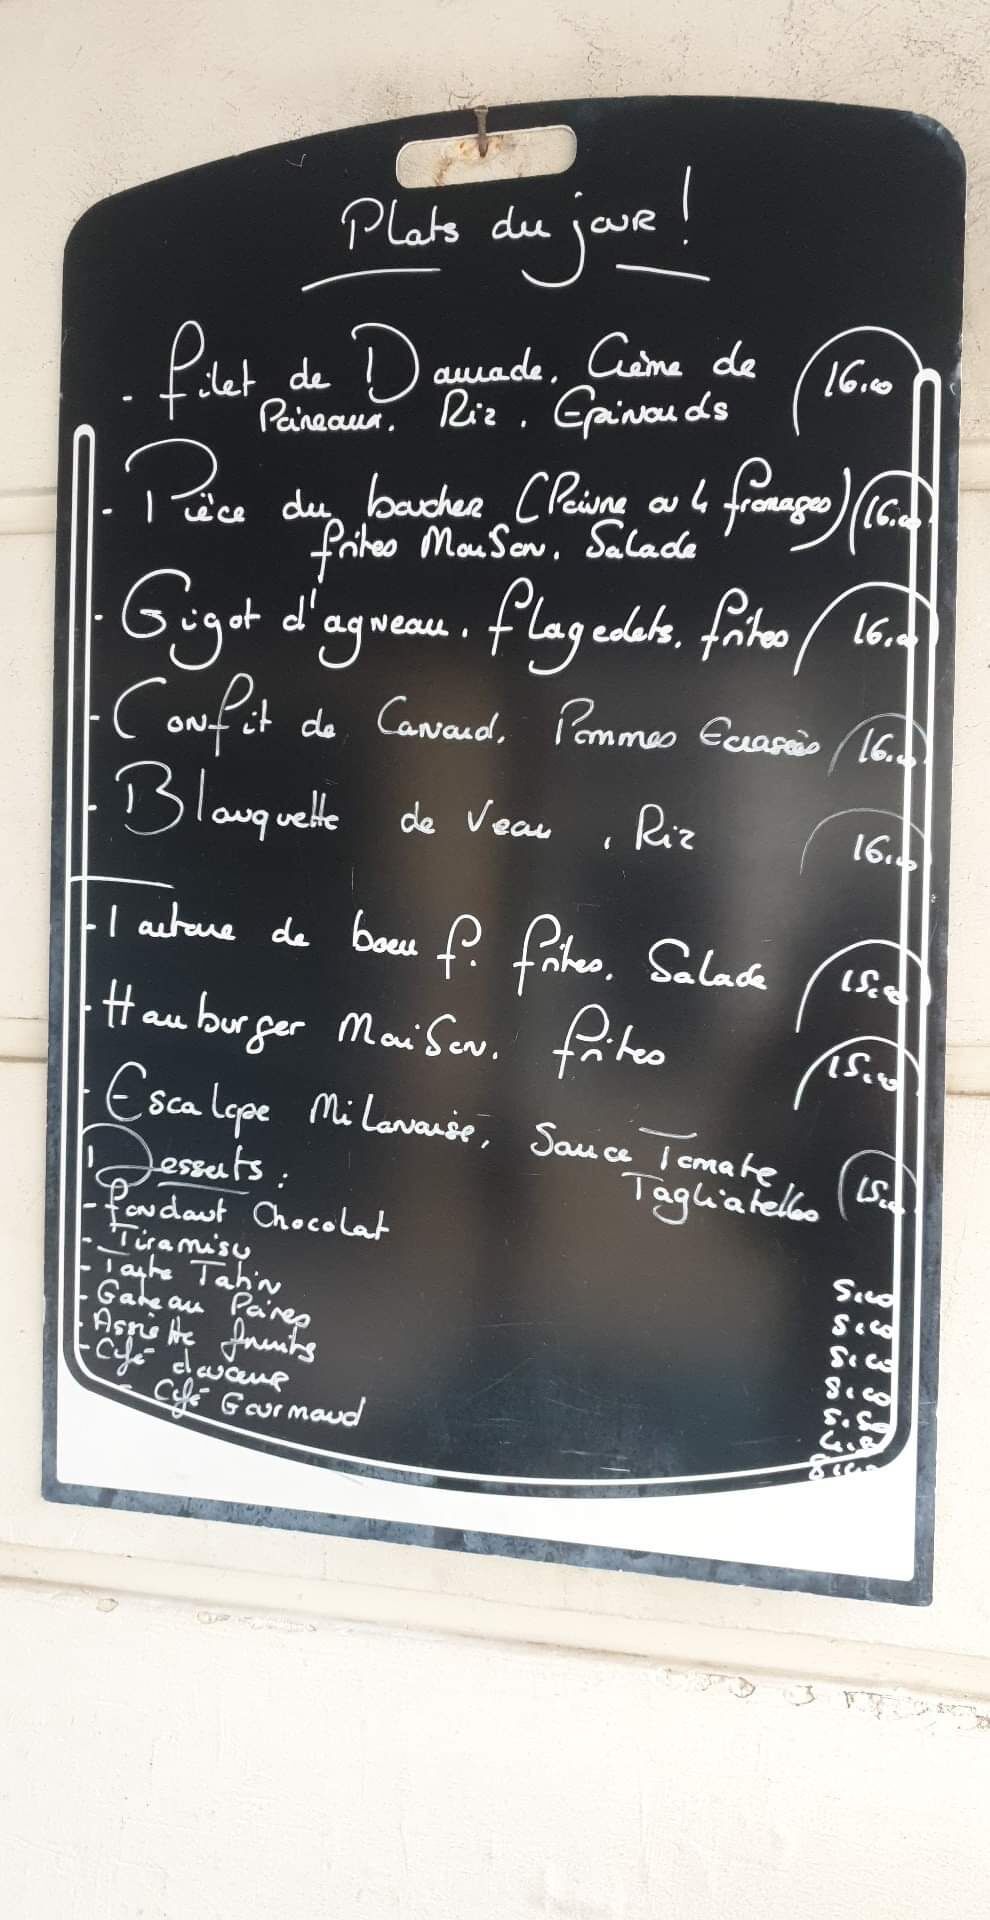 Plats du jour !
- Filet de Daurade, Crème de 16.00
Poireaux, Riz, Epinards
- Pièce du boucher (Poivre ou 4 fromages) 16.00
frites Maison, Salade
- Gigot d'agneau, flageolets, frites 16.00
- Confit de Canard, Pommes Ecrasées 16.00
- Blanquette de Veau, Riz 16.00
- Tartare de boeuf, frites, Salade 15.00
- Hamburger Maison, frites 15.00
- Escalope Milanaise, Sauce Tomate
Tagliatelles 15.00
Desserts :
- Fondant Chocolat 5.00
- Tiramisu 5.00
- Tarte Tatin 5.00
- Gateau Poires
- Assiette fruits 5.50
- Café
- Café Gourmand